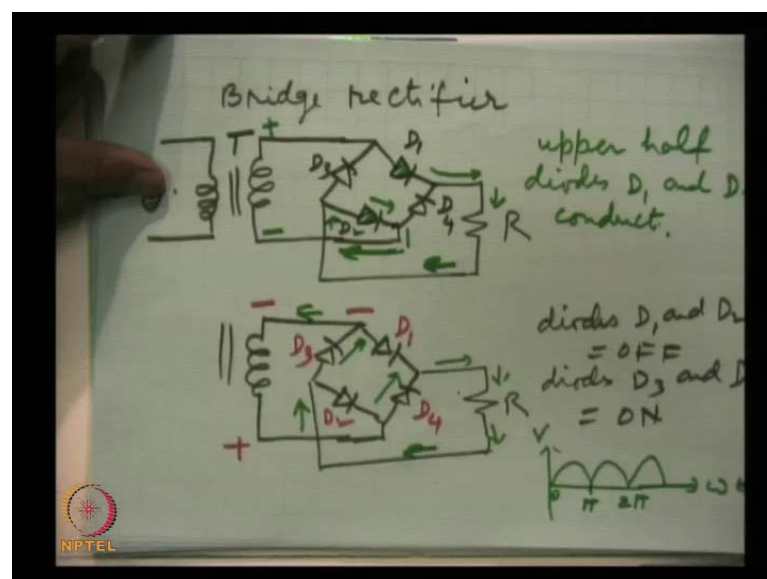 Bridge rectifier
T
+
D3
D1
D2
D4
+
-
R
upper half
diodes D1 and D
conduct.
-
-
D3
D1
D2
D4
+
R
diodes D1 and D2
= OFF
diodes D3 and D
= ON
V
0
π
2π
ω
NPTEL